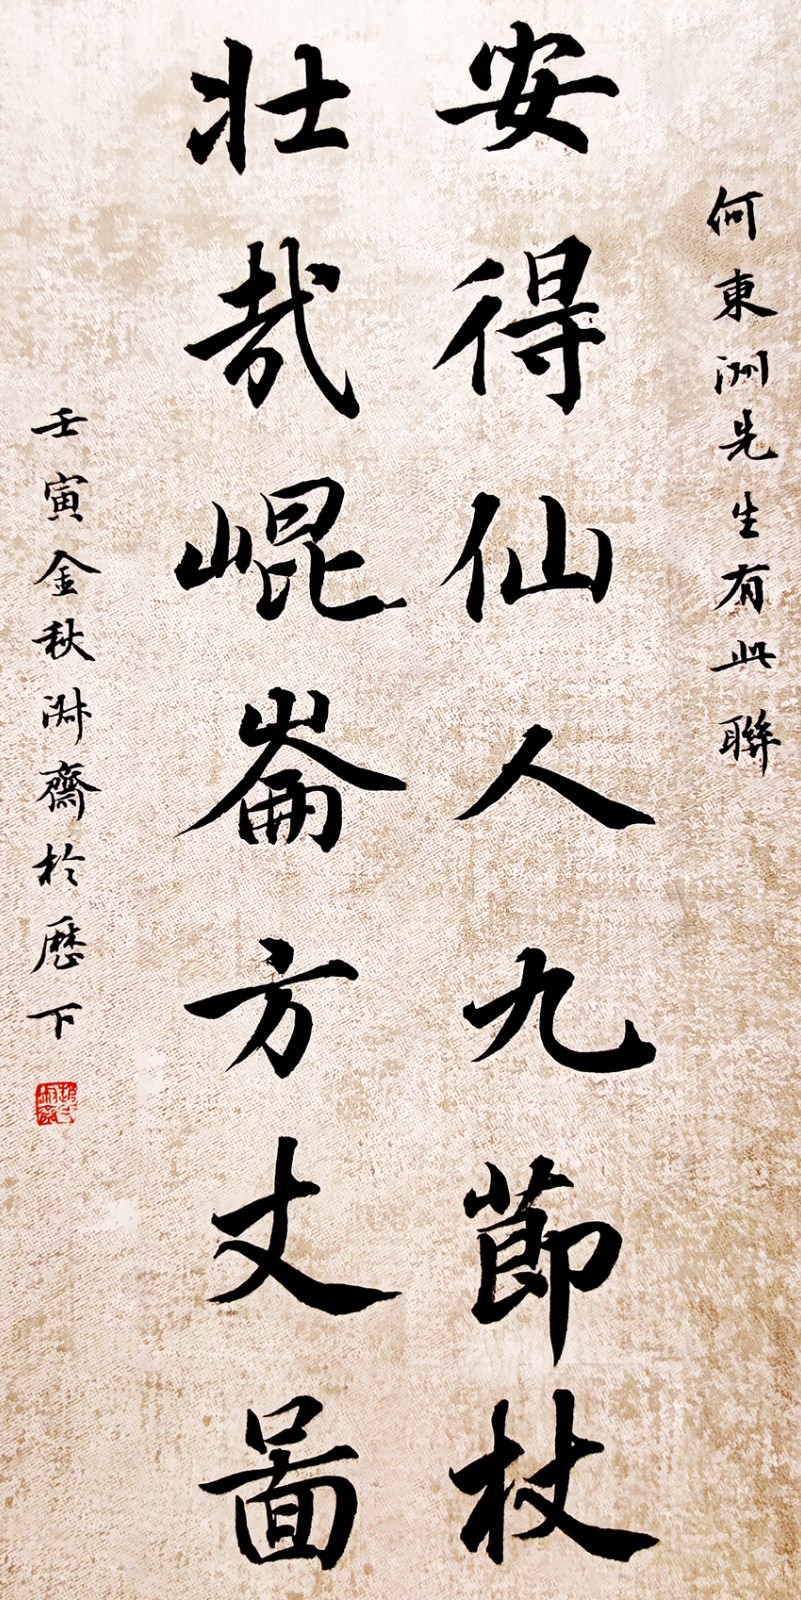 何東洲先生有此聯
安得仙人九節杖
壯哉崐崙方丈啚
壬寅金秋淵齋於歷下